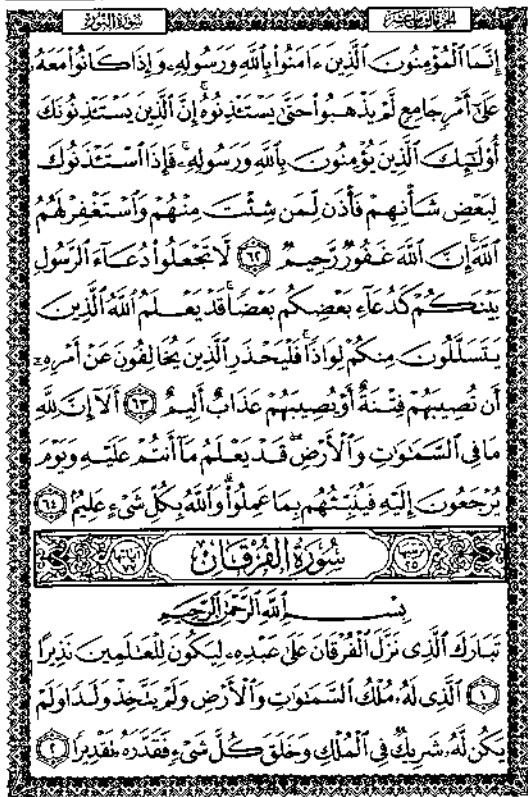 الجزء الثامن عشر
سورة النور
إِنَّمَا ٱلْمُؤْمِنُونَ ٱلَّذِينَ ءَامَنُوا۟ بِٱللَّهِ وَرَسُولِهِۦ وَإِذَا كَانُوا۟ مَعَهُۥ
عَلَىٰٓ أَمْرٍ جَامِعٍ لَّمْ يَذْهَبُوا۟ حَتَّىٰ يَسْتَـْٔذِنُوهُ ۚ إِنَّ ٱلَّذِينَ يَسْتَـْٔذِنُونَكَ
أُو۟لَـٰٓئِكَ ٱلَّذِينَ يُؤْمِنُونَ بِٱللَّهِ وَرَسُولِهِۦ ۚ فَإِذَا ٱسْتَـْٔذَنُوكَ
لِبَعْضِ شَأْنِهِمْ فَأْذَن لِّمَن شِئْتَ مِنْهُمْ وَٱسْتَغْفِرْ لَهُمُ
ٱللَّهَ ۚ إِنَّ ٱللَّهَ غَفُورٌ رَّحِيمٌ ٦٢ لَّا تَجْعَلُوا۟ دُعَآءَ ٱلرَّسُولِ
بَيْنَكُمْ كَدُعَآءِ بَعْضِكُم بَعْضًا ۚ قَدْ يَعْلَمُ ٱللَّهُ ٱلَّذِينَ
يَتَسَلَّلُونَ مِنكُمْ لِوَاذًا ۚ فَلْيَحْذَرِ ٱلَّذِينَ يُخَالِفُونَ عَنْ أَمْرِهِۦٓ
أَن تُصِيبَهُمْ فِتْنَةٌ أَوْ يُصِيبَهُمْ عَذَابٌ أَلِيمٌ ٦٣ أَلَآ إِنَّ لِلَّهِ
مَا فِى ٱلسَّمَـٰوَٰتِ وَٱلْأَرْضِ ۖ قَدْ يَعْلَمُ مَآ أَنتُمْ عَلَيْهِ وَيَوْمَ
يُرْجَعُونَ إِلَيْهِ فَيُنَبِّئُهُم بِمَا عَمِلُوا۟ ۗ وَٱللَّهُ بِكُلِّ شَىْءٍ عَلِيمٌۢ ٦٤
ترتيبها ٢٥ سُورَةُ ٱلْفُرْقَانِ آياتها ٧٧
بِسْمِ ٱللَّهِ ٱلرَّحْمَـٰنِ ٱلرَّحِيمِ
تَبَارَكَ ٱلَّذِى نَزَّلَ ٱلْفُرْقَانَ عَلَىٰ عَبْدِهِۦ لِيَكُونَ لِلْعَـٰلَمِينَ نَذِيرًا
١ ٱلَّذِى لَهُۥ مُلْكُ ٱلسَّمَـٰوَٰتِ وَٱلْأَرْضِ وَلَمْ يَتَّخِذْ وَلَدًا وَلَمْ
يَكُن لَّهُۥ شَرِيكٌ فِى ٱلْمُلْكِ وَخَلَقَ كُلَّ شَىْءٍ فَقَدَّرَهُۥ تَقْدِيرًا ٢